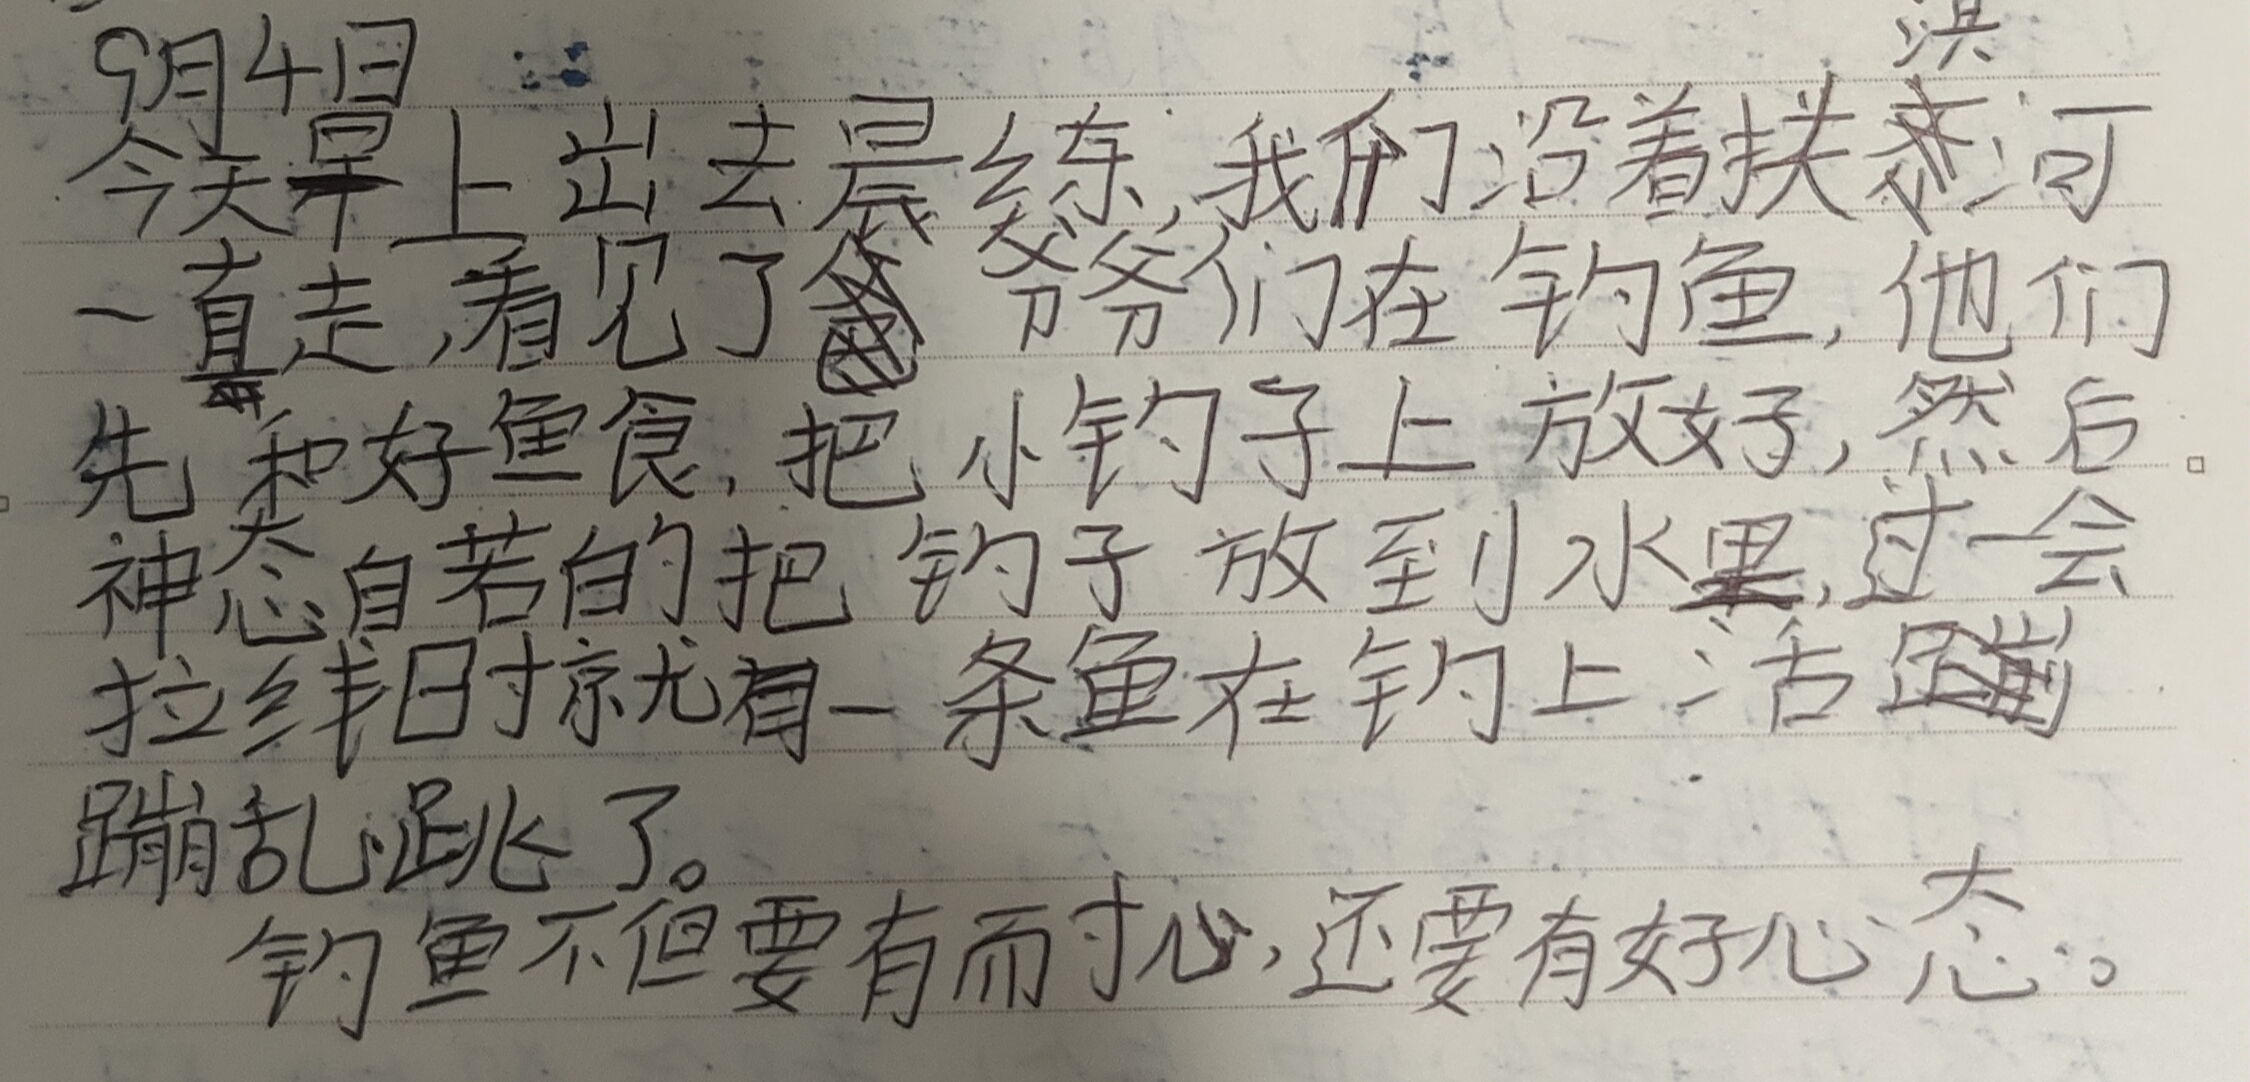 9月4日
今天早上出去晨练,我们沿着扶淇河
一直走,看见了爷爷们在钓鱼,他们
先和好鱼食,把小钓子上放好,然后
神态自若的把钓子放到水里,过一会
拉线时就有一条鱼在钓上活
蹦乱跳了。
钓鱼不但要有耐心,还要有好心态。